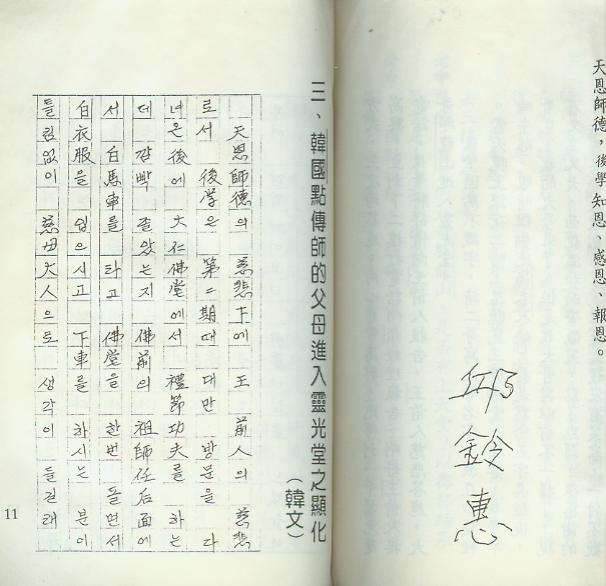 天恩師德，後學知恩、感恩、報恩。
邱鈴惠
三、韓國點傳師的父母進入靈光堂之顯化
（韓文）
天恩師德의 慈悲下에 王 前人의 慈悲
로서 後学은 第二期때 대만 방문을 다
녀온後에 大仁佛堂에서 禮節功夫를 하는
데 깜빡 졸았는지 佛前의 祖師任后面에
서 白馬車를 타고 佛堂을 한번 돌면서
白衣服을 입으시고 下車를 하시는 분이
틀림없이 慈母大人으로 생각이 들길래
11